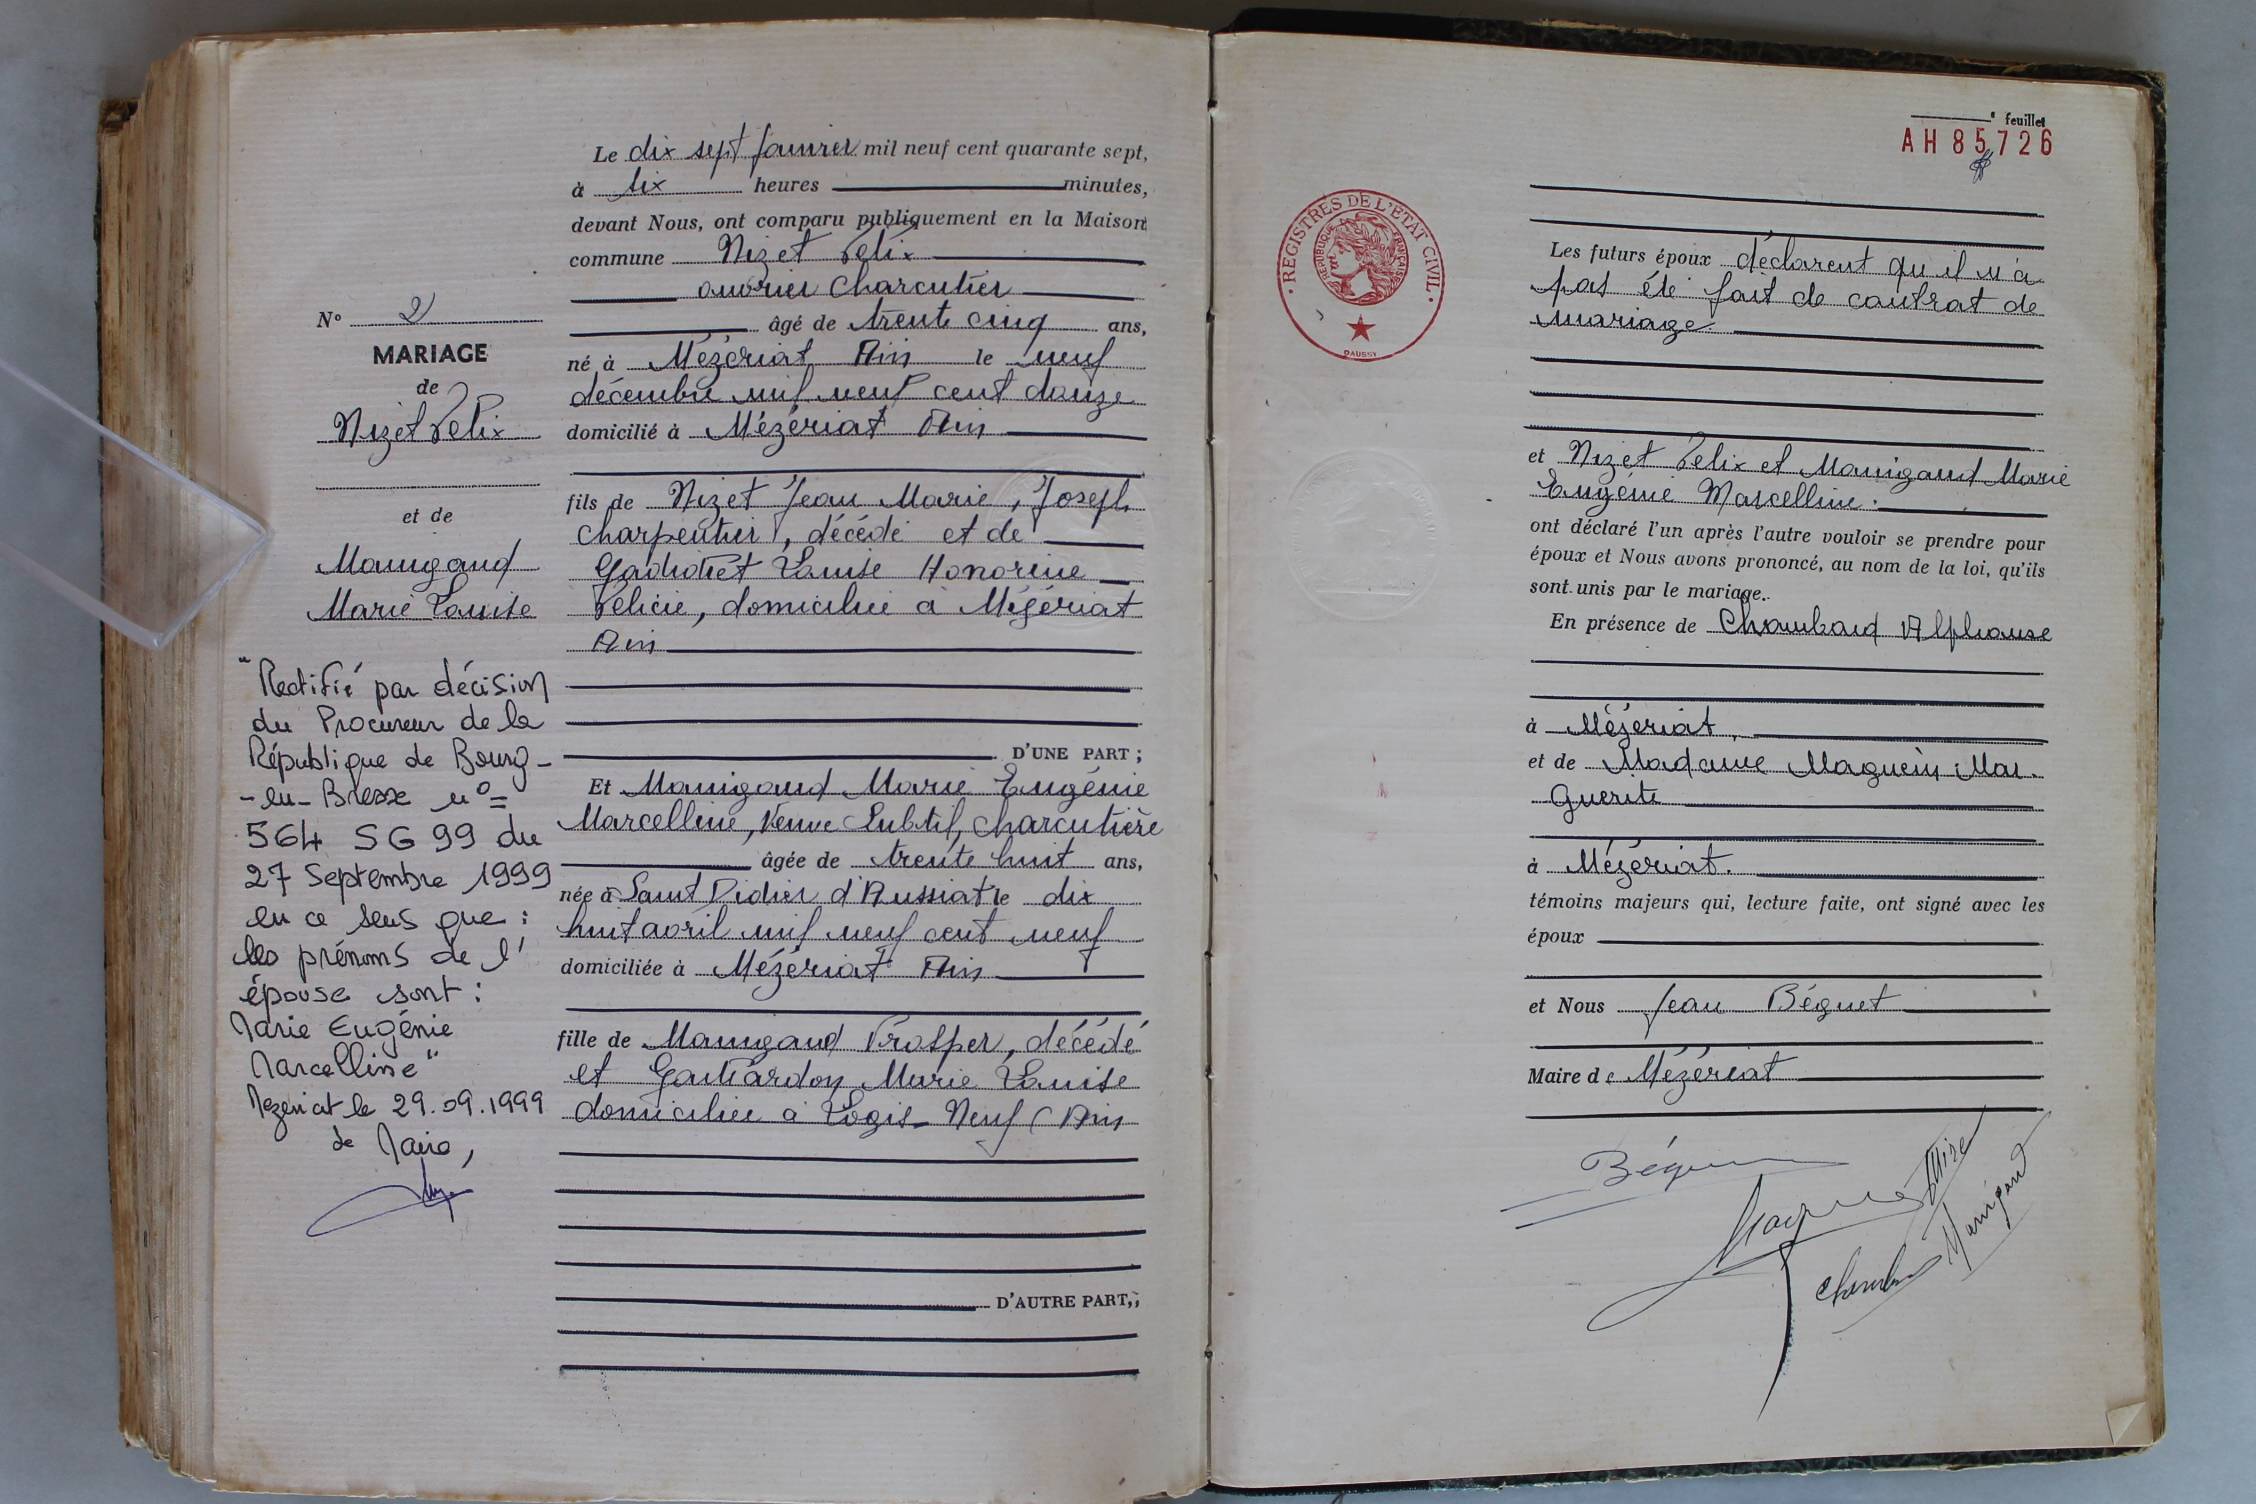 Le dix sept janvier mil neuf cent quarante sept,
à six heures minutes,
devant Nous, ont comparu publiquement en la Maison
commune Nizet Félix
ouvrier charcutier
âgé de trente cinq ans,
né à Mézériat Ain le neuf
décembre mil neuf cent douze
domicilié à Mézériat Ain
fils de Nizet Jean Marie, Joseph
charpentier, décédé et de
Louise Honorine
Félicie, domiciliée à Mézériat
Ain
D'UNE PART ;
Et Manigand Marie Eugénie
Marcelline, Veuve Subtil, charcutière
âgée de trente huit ans,
née à Saint Didier d'Aussiat le dix
huit avril mil neuf cent neuf
domiciliée à Mézériat Ain
fille de Manigand Prosper, décédé
et Marie Louise
domiciliée à Logis-Neuf (Ain
D'AUTRE PART,;
N° 2
MARIAGE
de
Nizet Félix
et de
Manigand
Marie Louise
"Rectifié par décision
du Procureur de la
République de Bourg-
-en-Bresse n°=
564 SG 99 du
27 Septembre 1999
en ce sens que :
les prénoms de l'
épouse sont :
Marie Eugénie
Marcelline"
Mezeriat le 29.09.1999
Le Maire,
feuillet
AH 85726
REGISTRES DE L'ETAT CIVIL
REPUBLIQUE FRANÇAISE
DAUSSY
Les futurs époux déclarent qu'il n'a
pas été fait de contrat de
mariage
et Nizet Felix et Manigand Marie
Eugénie Marcelline.
ont déclaré l'un après l'autre vouloir se prendre pour
époux et Nous avons prononcé, au nom de la loi, qu'ils
sont unis par le mariage.
En présence de Chambard Alphonse
à Mézeriat,
et de Madame Maguin Mar-
guerite
à Mézeriat.
témoins majeurs qui, lecture faite, ont signé avec les
époux
et Nous Jean Béguet
Maire de Mézériat
Manigand